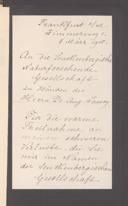 Frankfurt a/M
An die Senckenbergische
Naturforschende
Gesellschaft
zu Händen des
Herrn Dr.
Für die warme
Theilnahme an
schweren
Verluste, die Sie
mir im Namen
der Senckenbergischen
Gesellschaft